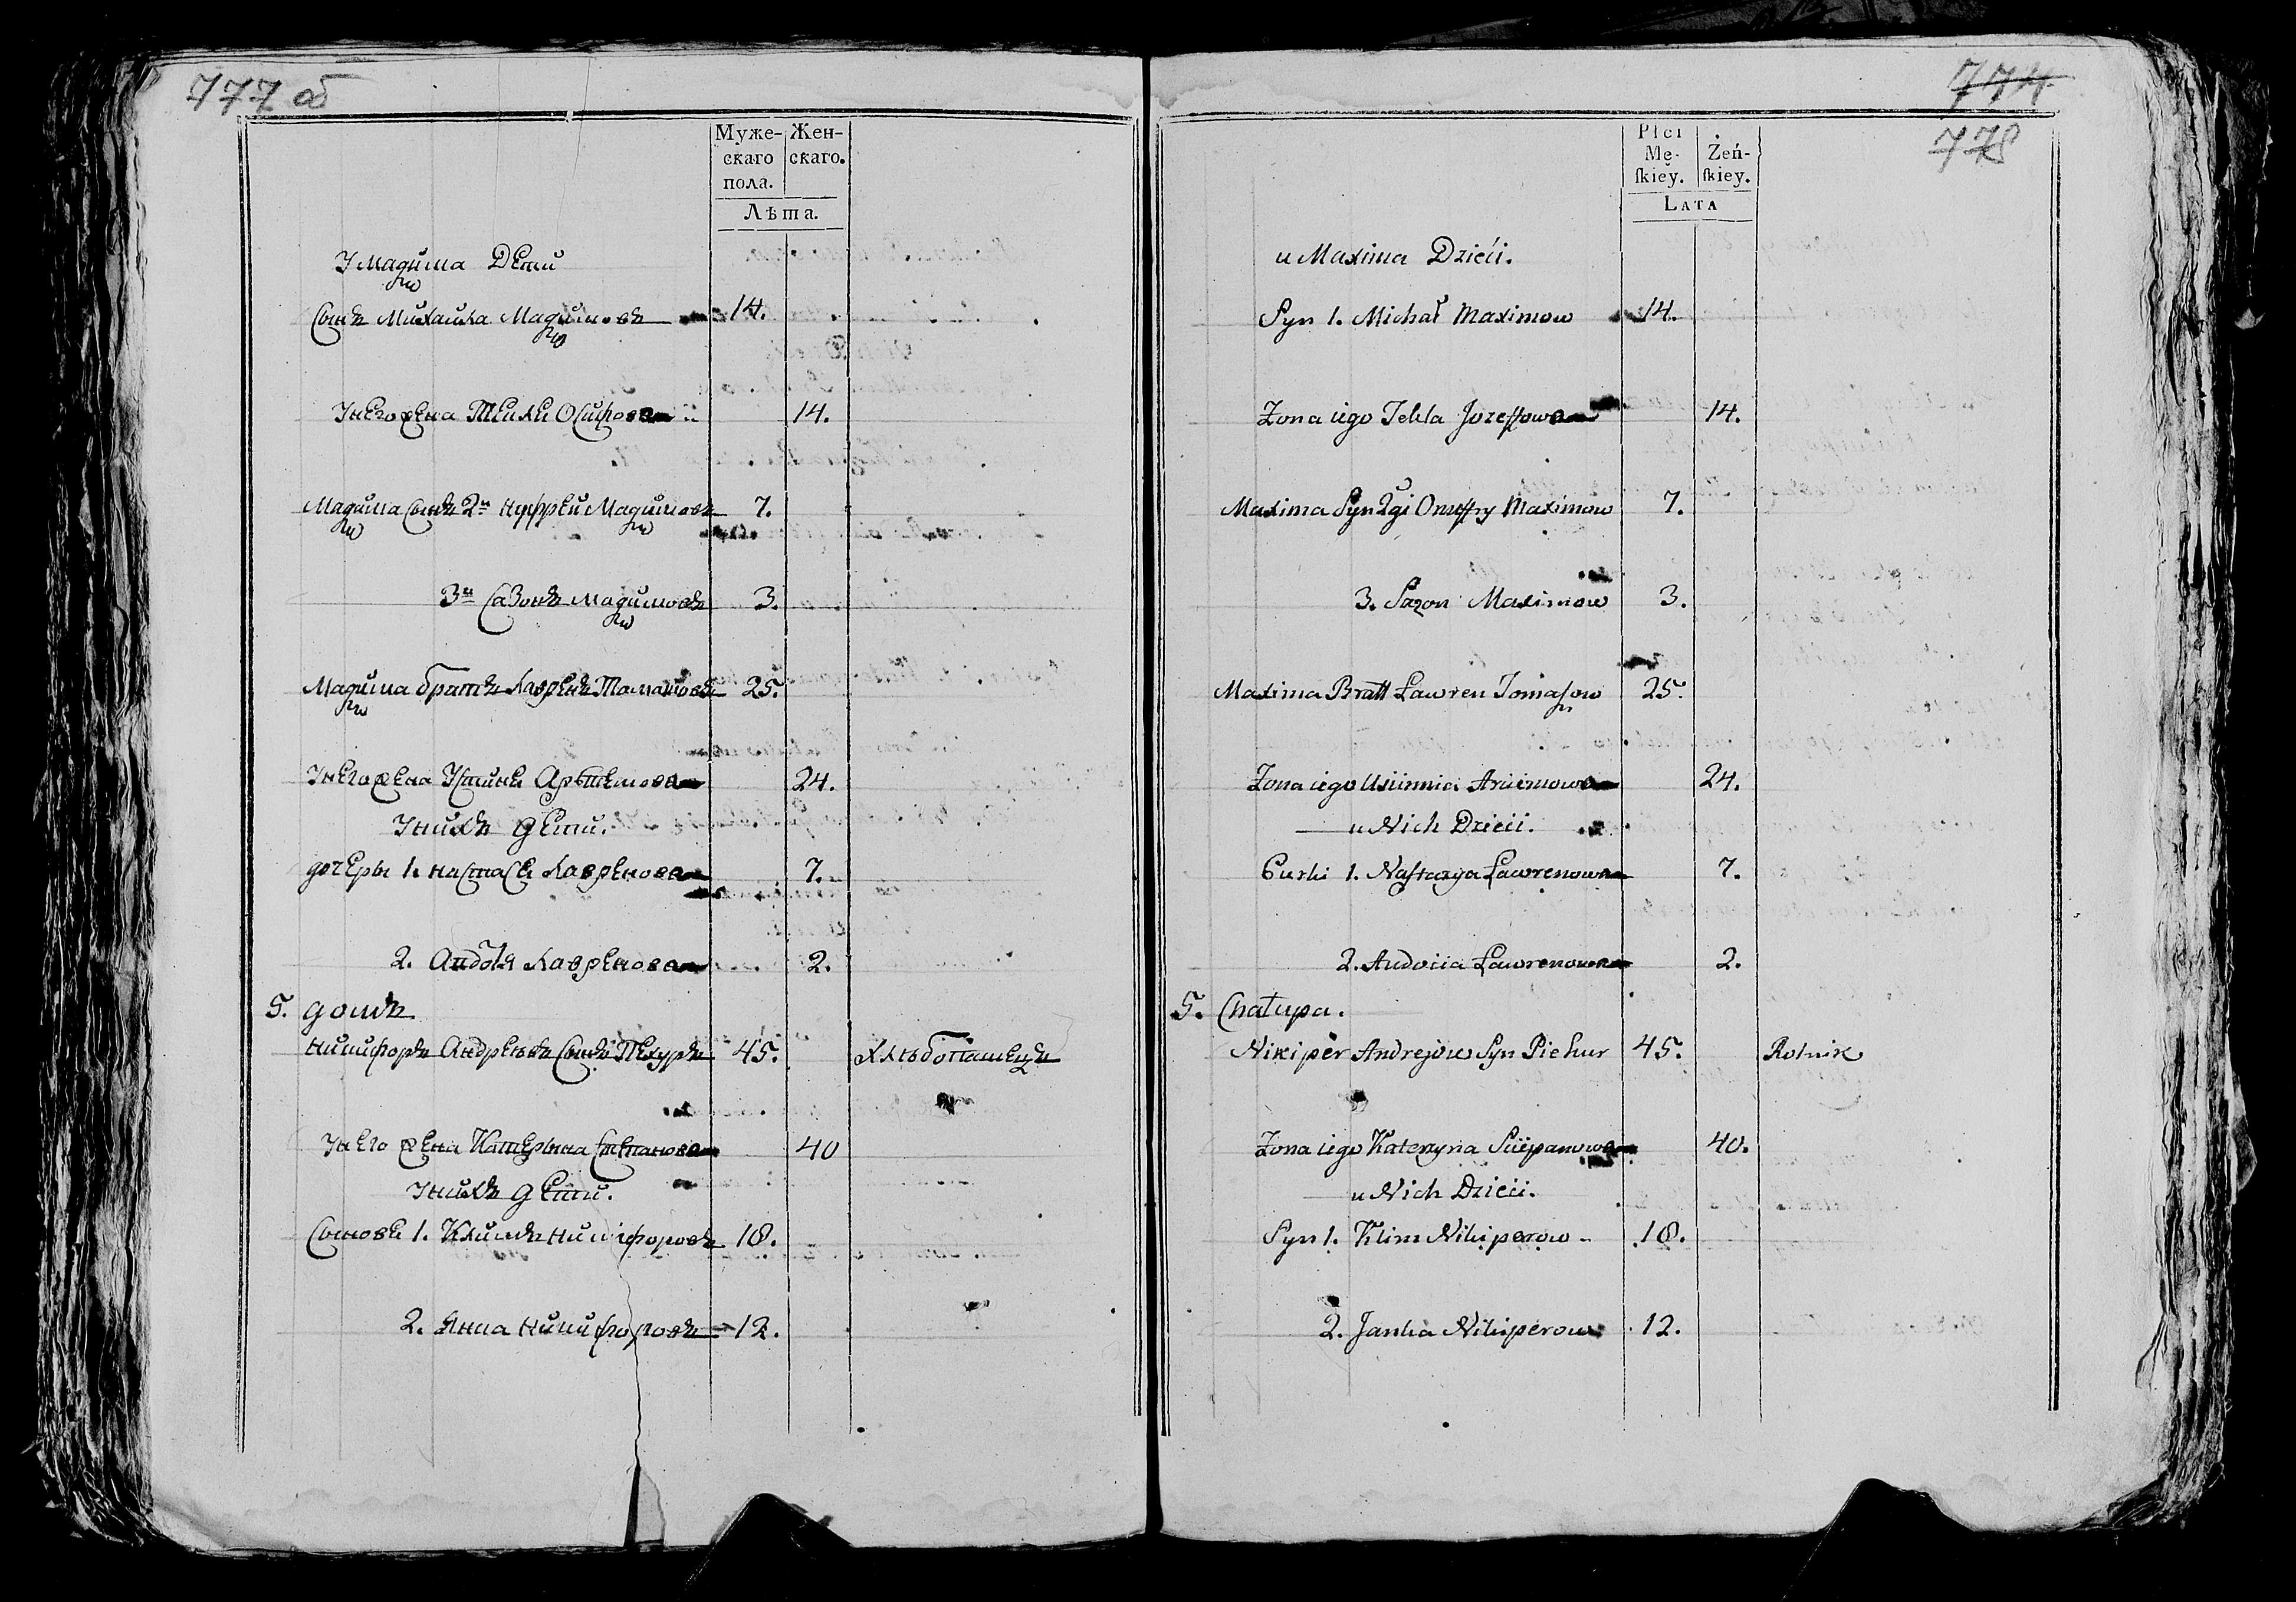 777 об
Муже- Жен-
скаго скаго.
пола.
Лѣта.
У Мадима Дети
Сынъ Михаила Мадимовъ 14.
У него жена Текля Осифова 14.
Мадима Сынъ 2й Нуфрей Мадимовъ 7.
3й Сазонъ Мадимовъ 3.
Мадима братъ Лавренъ Томашовъ 25.
У него жена Устиня Артемова 24.
У нихъ дети.
дочеры 1. Настася Лавренова 7.
2. Авдотя Лавренова 2.
5. домъ
Никифоръ Андреевъ Сынъ Пехуръ 45. Хлебопашецъ
У него жена Катерына Степанова 40
У нихъ дети.
Сыновя 1. Климъ Никифоровъ 18.
2. Янка Никифоровъ 12.
774
778
Płci
Mę- Żeń-
skiey. skiey.
LATA
u Maxima Dzieći.
Syn 1. Michał Maximow 14.
Zona iego Tekla Jozeffowa 14.
Maxima Syn 2gi Onuffry Maximow 7.
3. Sazon Maximow 3.
Maxima Bratt Ławren Tomasow 25.
Zona iego Usiinnia Arciemowa 24.
u Nich Dzieci.
Curki 1. Nastazya Ławrenowa 7.
2. Audocia Ławrenowa 2.
5. Chałupa.
Nikiper Andrejow Syn Piehur 45. Rolnik
Zona iego Kateryna Sciepanowa 40.
u Nich Dzieci.
Syn 1. Klim Nikiperow 18.
2. Janka Nikiperow 12.